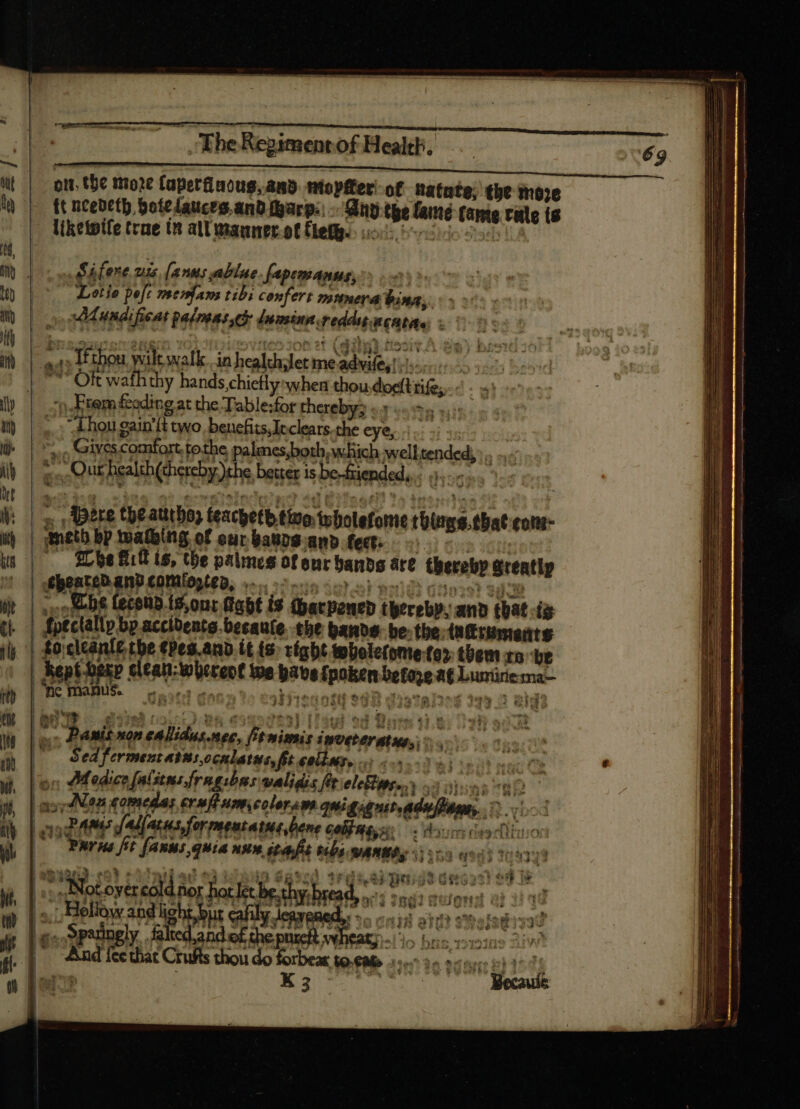 The Regiment of Health.
69
on, the more superfluous, and moyster of nature, the more
it needeth hote sauces, and sharp. And the same rule is
likewise true in all manner of flesh.
Si fore vis sanus ablue sape manus,
Lotio post mensam tibi confert munera bina,
Mundificat palmas, & lumina reddit acuta.
If thou wilt walk in health, let me advise,
Oft wash thy hands, chiefly when thou dost rise,
From feeding at the Table: for thereby,
Thou gain'st two benefits, It clears the eye,
Gives comfort to the palmes, both, which well tended,
Our health (thereby) the better is be-friended.
Here the author teacheth two wholesome things, that com-
meth by washing of our hands and feet.
The first is, the palmes of our hands are thereby greatly
and comforted,
The second is, our sight is sharpened thereby, and that is
specially by accidents, because the hands be the instruments
to cleanse the eyes, and it is right wholesome for them to be
kept very clean: whereof we have spoken before at Lumine ma-
ne manus.
Panis non calidus, nec, sit nimis inveteratus,
Sed fermentatus, oculatus, sit coctus.
Modice salitus, frugibus validis sit electus.
Non comedas crustum, coleram qui gignit, adustam,
Panis salsatus, formentatus, bene coctus,
Purus sit sanus, quia non ita sit tibi vanus,
Not over cold nor hot let be thy bread,
Hollow and light, but easily leavened,
Sparingly salted, and of the purest wheat,
And see that Crusts thou do forbear to eate
K 3
Because